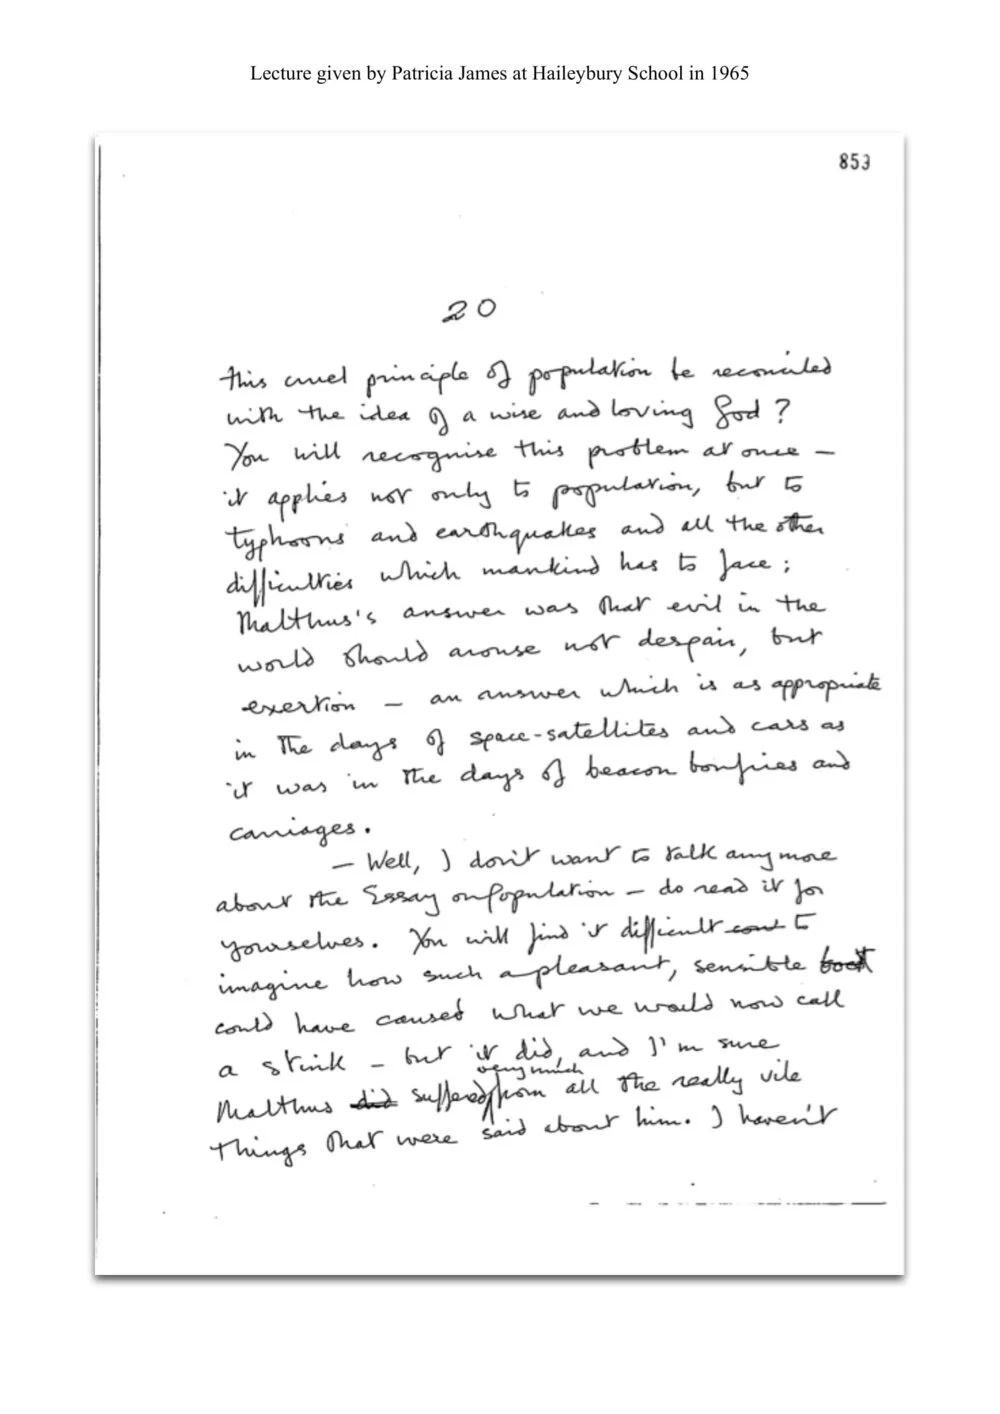 Lecture given by Patricia James at Haileybury School in 1965
853
20
this cruel principle of population be reconciled
with the idea of a wise and loving God?
You will recognise this problem at once –
it applies not only to population, but to
typhoons and earthquakes and all the other
difficulties which mankind has to face;
Malthus's answer was that evil in the
world should arouse not despair, but
exertion – an answer which is as appropriate
in the days of space-satellites and cars as
it was in the days of beacon bonfires and
carriages.
– Well, I don't want to talk any more
about the Essay on Population – do read it for
yourselves. You will find it difficult to
imagine how such a pleasant, sensible book
could have caused what we would now call
a stink – but it did, and I'm sure
very much
Malthus did suffered from all the really vile
things that were said about him. I haven't